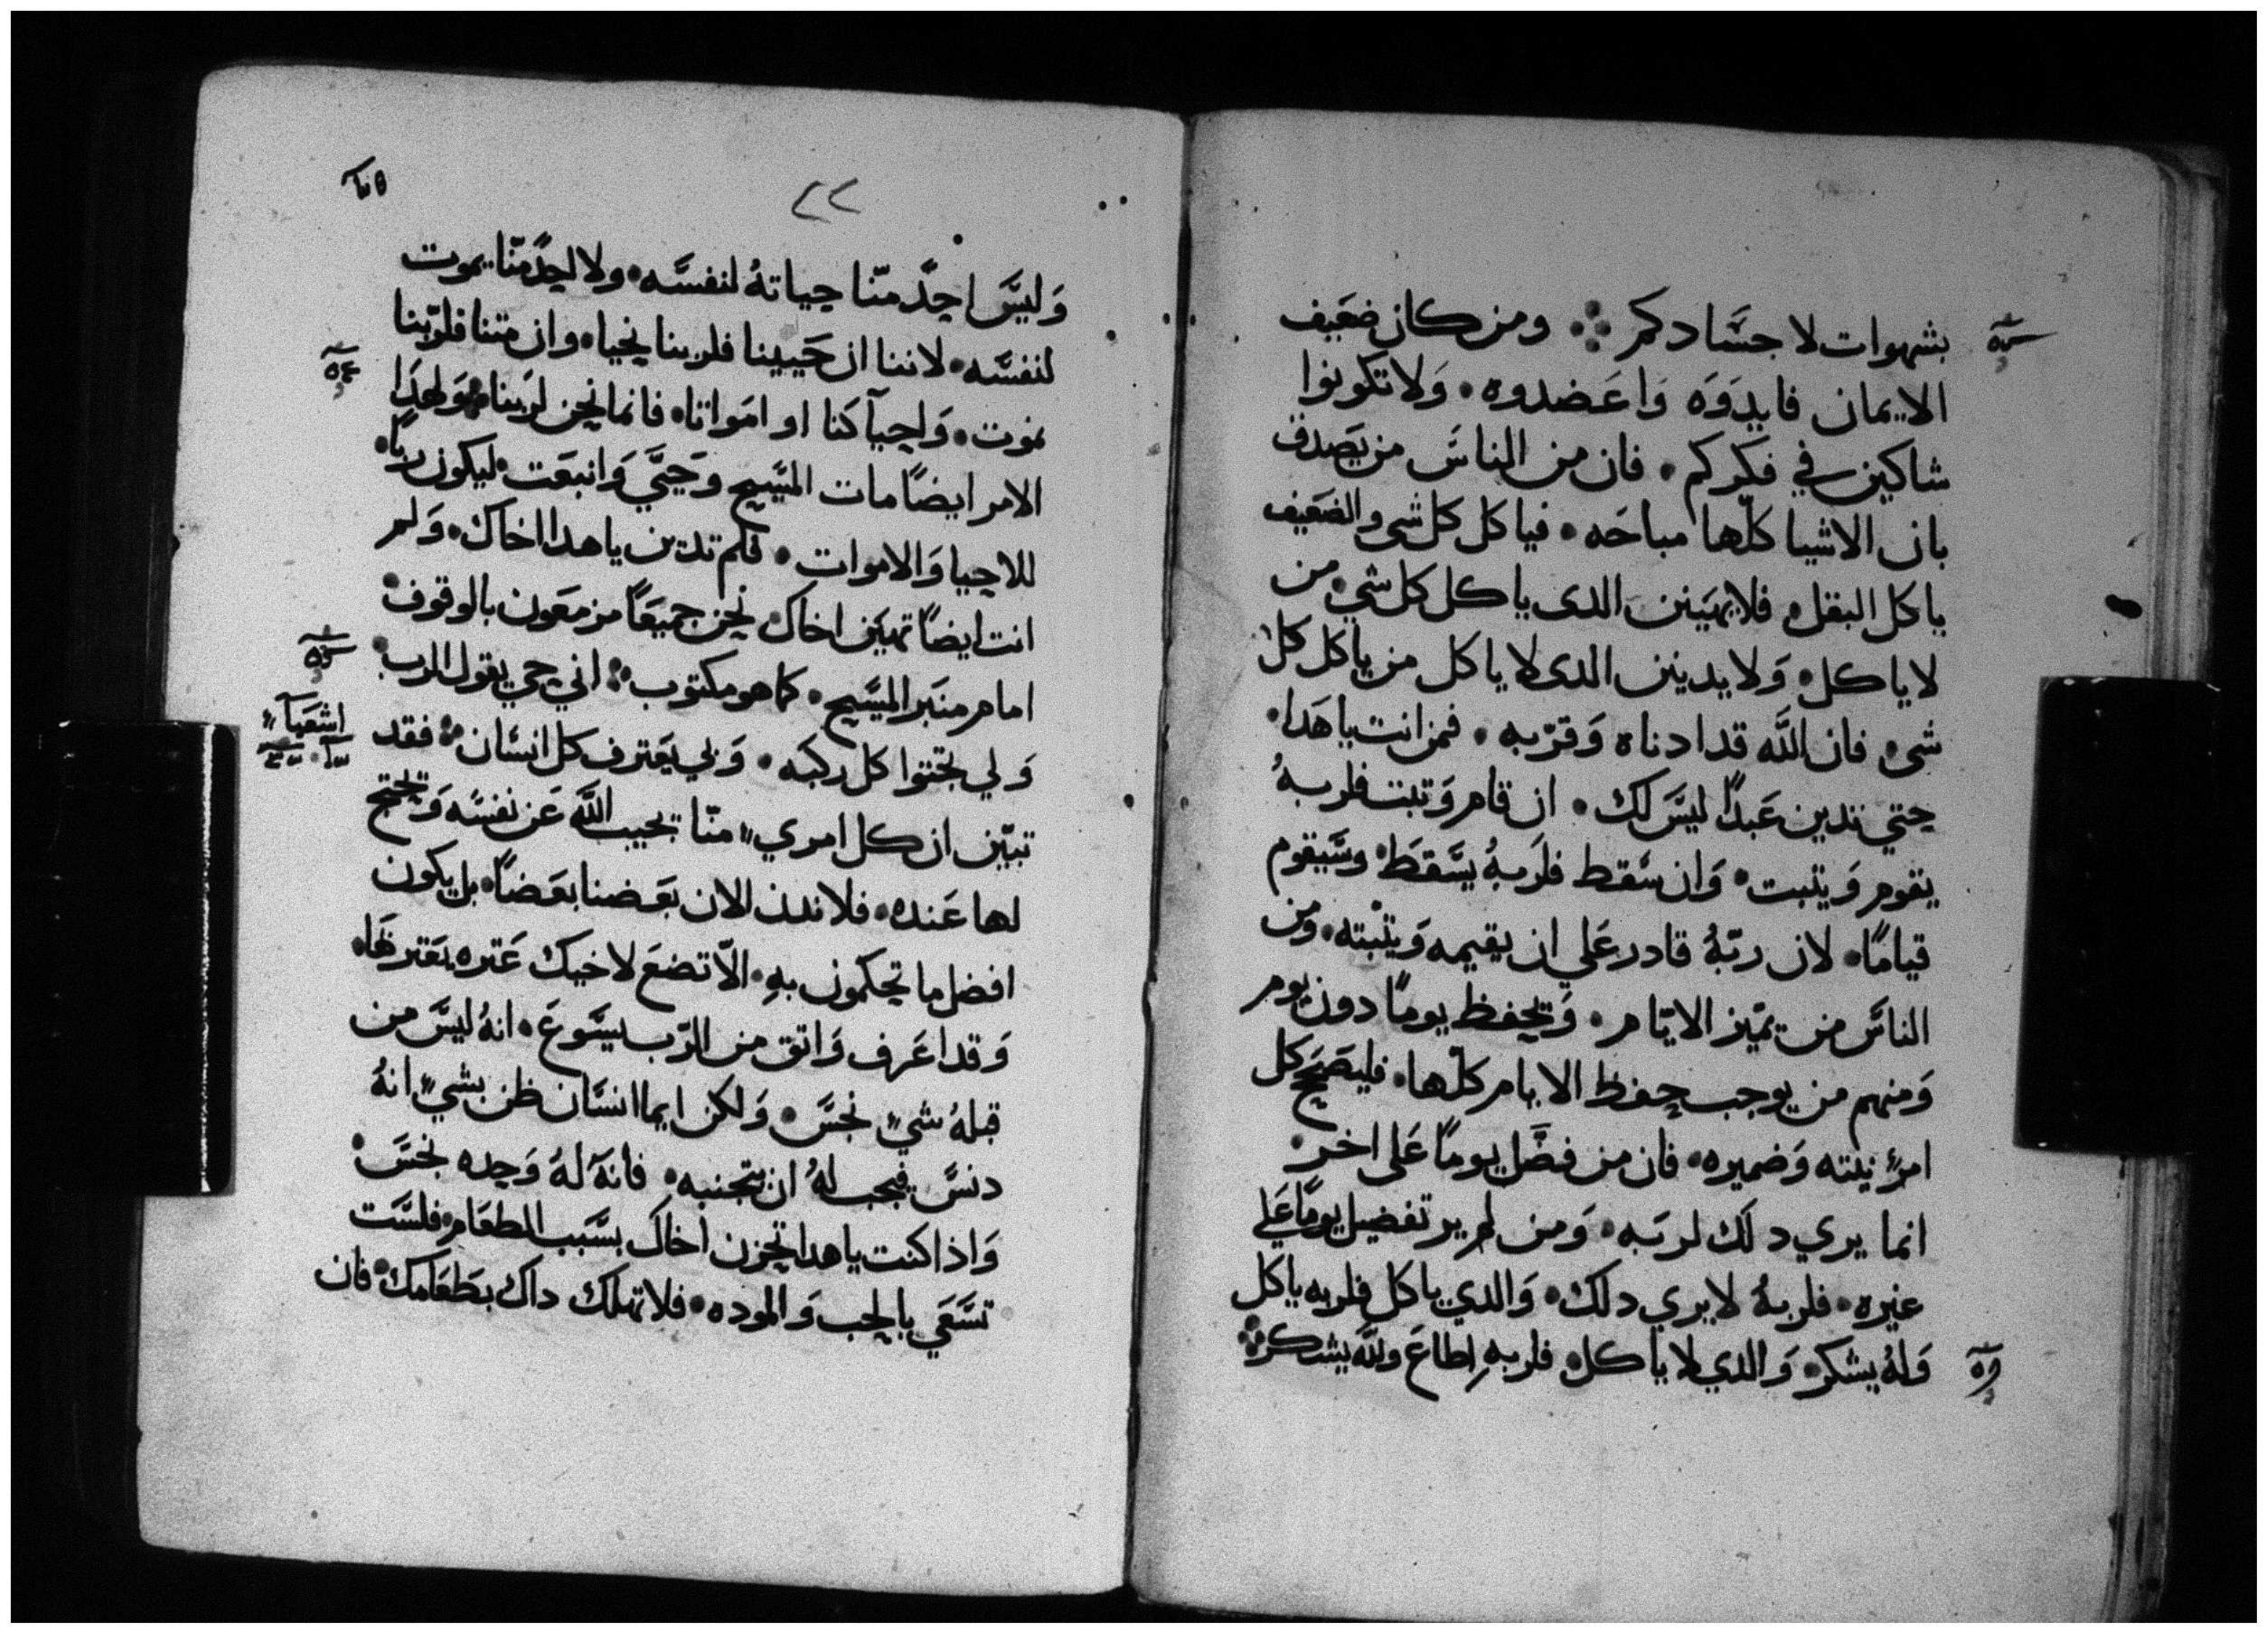 بشهوات لاجسادكم ومن كان ضعيف
الايمان فايدوه واعضدوه ولا تكونوا
شاكين في فكركم فان من الناس من يصدق
بان الاشيا كلها مباحه فياكل كل شي والضعيف
ياكل البقل فلا يهينن الدى ياكل كل شي من
لا ياكل ولا يدينن الدى لا ياكل من ياكل كل
شى فان الله قد ادناه وقربه فمن انت يا هدا
حتي تدين عبدًا ليس لك ان قام وتبت فلربهُ
يقوم ويتبت وان سقط فلربهُ يسقط وسيقوم
قيامًا لان ربّهُ قادر علي ان يقيمه ويثبته ومن
الناس من يميّز الايّام ويحفظ يومًا دون يوم
ومنهم من يوجب حفظ الايام كلها فليصحح كل
امرءٍ نيته وضميره فان من فضّل يومًا على اخر
انما يري دلك لربه ومن لم ير تفضيل يومًا علي
غيره فلربهُ لا يري دلك والدي ياكل فلربه ياكل
ولهُ يشكر والدي لا ياكل فلربهِ اطاع ولله يشكر
٢٢
وليس احدٌ منّا حياتهُ لنفسه ولا احدٌ منّا يموت
لنفسه لاننا ان حيينا فلربنا نحيا وان متنا فلربّنا
نموت واحيآ كنا او امواتا فانما نحن لربنا ولهدا
الامر ايضًا مات المسيح وحيي وانبعت ليكون ربًا
للاحيا والاموات فلم تدين يا هدا اخاك ولم
انت ايضًا تهين اخاك نحن جميعًا مزمعون بالوقوف
امام منبر المسيح كما هو مكتوب اني حي يقول الرب
ولي تجتوا كل ركبه ولي يعترف كل انسان فقد
تبيّن ان كل امريءٍ منّا يجيب الله عن نفسه ويحتج
لها عنده فلا ندن الان بعضنا بعضًا بل يكون
افضل ما تحكمون بهِ الّا تضع لاخيك عتره يعتر بها
وقد اعرف واتق من الرّب يسوع انهُ ليس من
قبلهُ شيءٍ نجس ولكن ايما انسان ظن بشيءٍ انهُ
دنس فيجب لهُ ان يتجنبه فانه لهُ وحده نجس
واذا كنت يا هدا تحزن اخاك بسبب الطعام فلست
تسعي بالحب والموده فلا تهلك داك بطعامك فان
اشعيآء